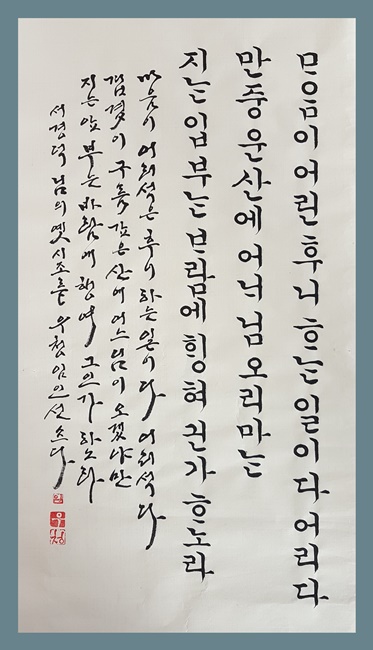 ᄆᆞ음이 어린 후니 ᄒᆞ는 일이 다 어리다
만듕운산에 어ᄂᆡ 님 오리마는
지는 입 부는 ᄇᆞ람에 ᄒᆡᆼ혀 긘가 ᄒᆞ노라
마음이 어리석은 후이 하는 일이 다 어리석다
겹겹이 구름 같은 산에 어느 님이 오겠냐만
지는 잎 부는 바람에 행여 그인가 하노라
서경덕 님의 옛시조를 우청 임인선 쓰다
우청